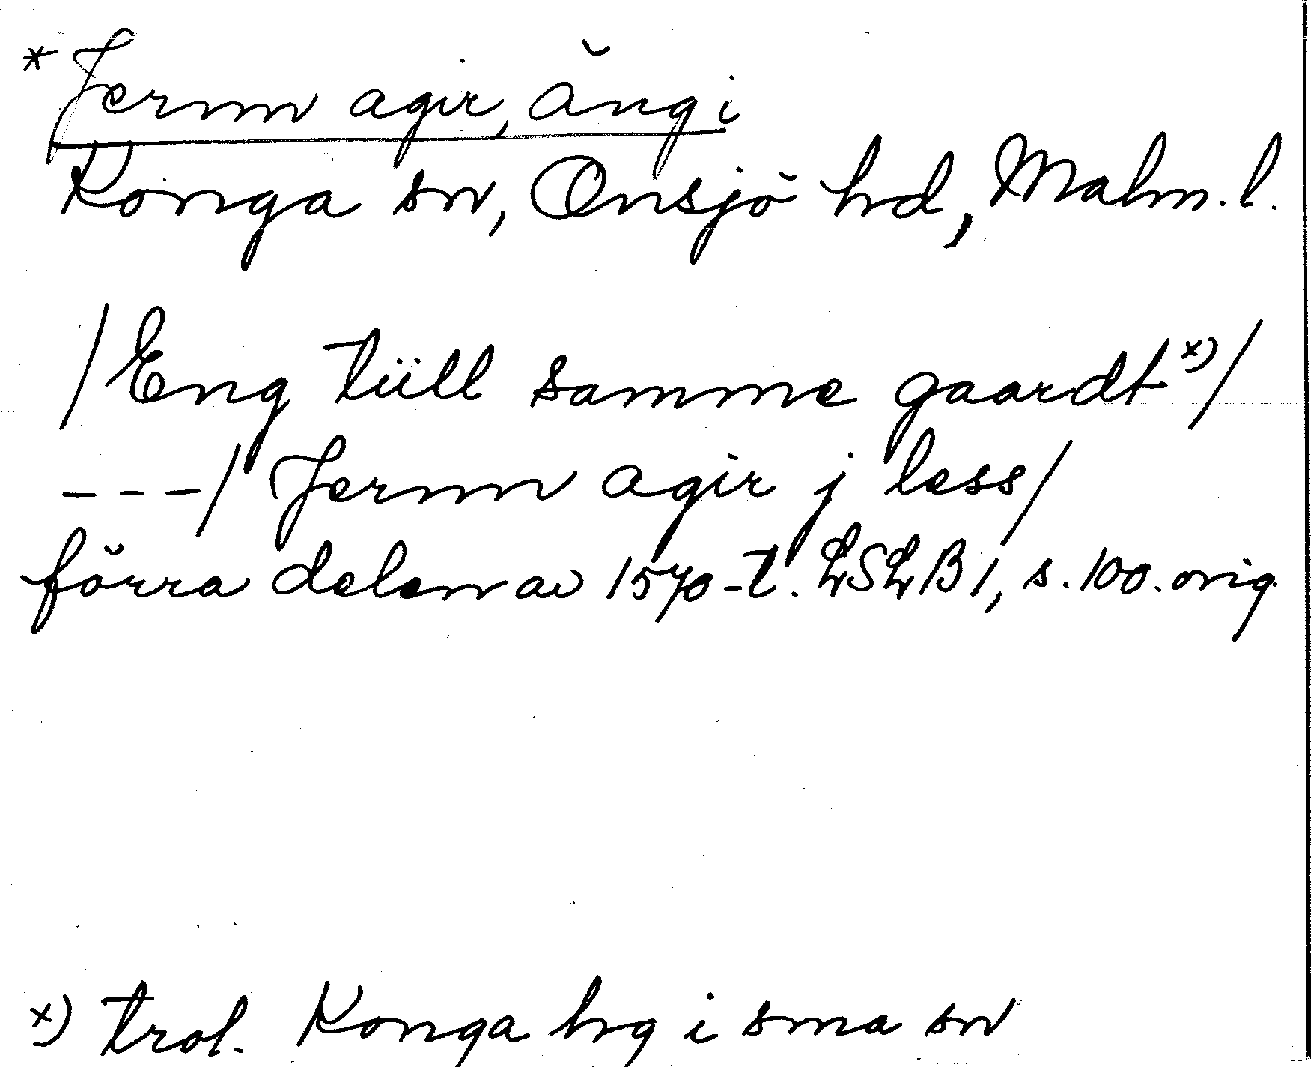 * Jernn agir, äng i
Konga sn, Onsjö hd, Malm. l.
/Eng tiill samme gaardt x)/
---/ Jernn agir j less/
förra delen av 1570-t. LSLB 1, s. 100. orig
x) trol. Konga hg i sma sn